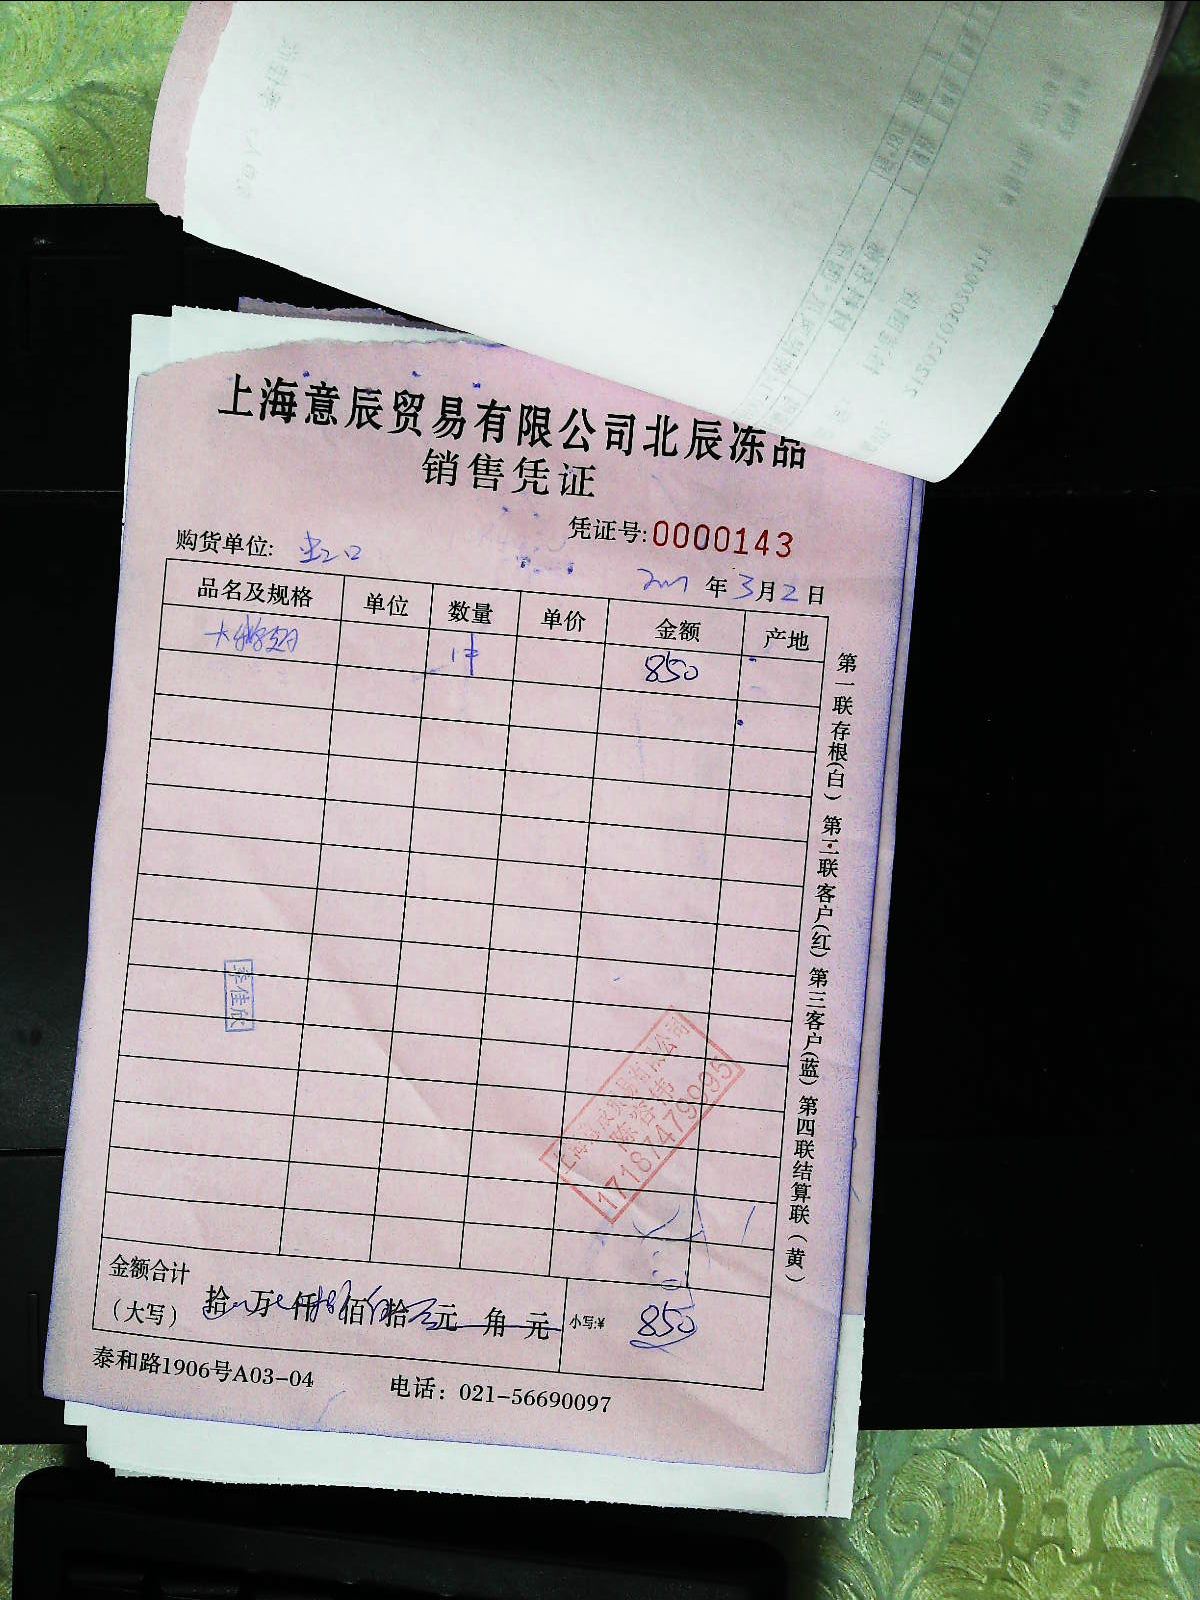 上海意辰贸易有限公司北辰冻品
销售凭证
凭证号:0000143
购货单位:
年3月2日
品名及规格 单位 数量 单价 金额 产地
1件 850
第一联存根(白) 第二联客户(红) 第三客户(蓝) 第四联结算联(黄)
李佳欣
上海意辰贸易有限公司
17187479995
金额合计
(大写) 拾 万 仟 佰 拾 元 角 元 小写:¥ 850
泰和路1906号A03-04 电话:021-56690097